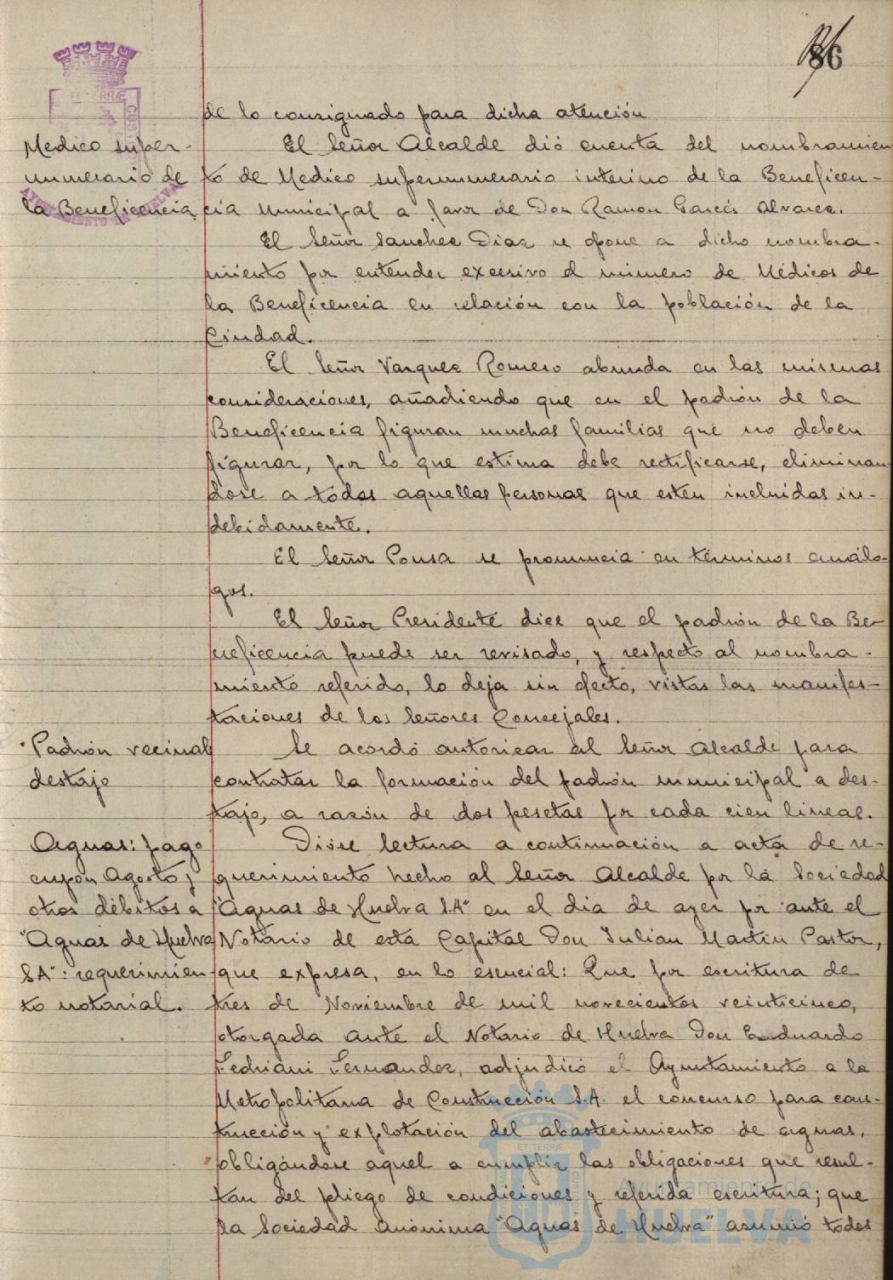 86
de lo consignado para dicha atención
Medico super-
numerario de
la Beneficencia
El Señor Alcalde dió cuenta del nombramien
to de Medico supernumerario interino de la Beneficen-
cia Municipal a favor de Don Ramon Garcés Alvarez.
El Señor Sanchez Diaz se opone a dicho nombra-
miento por entender excesivo el número de Médicos de
la Beneficencia en relación con la población de la
Ciudad.
El Señor Vazquez Romero abunda en las mismas
consideraciones, añadiendo que en el padrón de la
Beneficencia figuran muchas familias que no deben
figurar, por lo que estima debe rectificarse, eliminan
dose a todas aquellas personas que estén incluidas in-
debidamente.
El Señor Ponsa se pronuncia en términos análo-
gos.
El Señor Presidente dice que el padrón de la Be-
neficencia puede ser revisado, y respecto al nombra-
miento referido, lo deja sin efecto, vistas las manifes-
taciones de los Señores Concejales.
Padrón vecinal
destajo
Se acordó autorizar al Señor Alcalde para
contratar la formación del padrón municipal a des-
tajo, a razón de dos pesetas por cada cien lineas.
Aguas: pago
cupón Agosto y
otros débitos a
"Aguas de Huelva
S.A": requerimien-
to notarial.
Dióse lectura a continuación a acta de re-
querimiento hecho al Señor Alcalde por la Sociedad
"Aguas de Huelva S.A" en el dia de ayer por ante el
Notario de esta Capital Don Julian Martin Pastor,
que expresa, en lo esencial: Que por escritura de
tres de Noviembre de mil novecientos veinticinco,
otorgada ante el Notario de Huelva Don Eduardo
Fedriani Fernandez, adjudicó el Ayuntamiento a la
Metropolitana de Construcción S.A. el concurso para cons-
trucción y explotación del abastecimiento de aguas,
obligándose aquel a cumplir las obligaciones que resul-
tan del pliego de condiciones y referida escritura; que
la Sociedad anónima "Aguas de Huelva" asumió todos
Ayuntamiento de
HUELVA